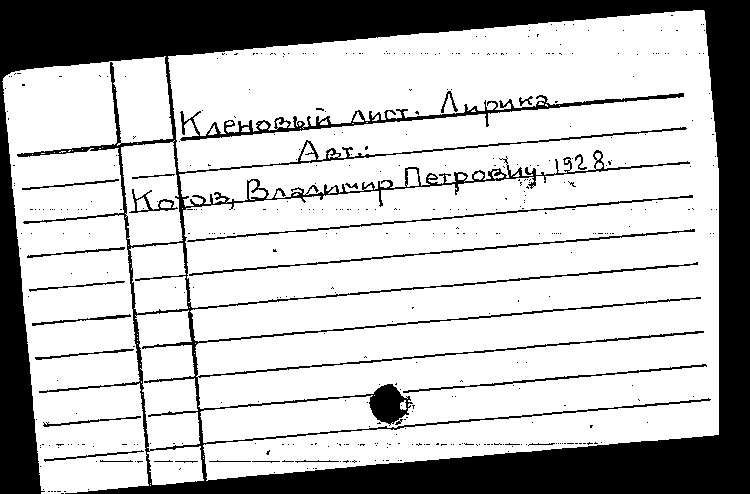 Кленовый лист. Лирика.
Авт.:
Котов, Владимир Петрович, 1928.